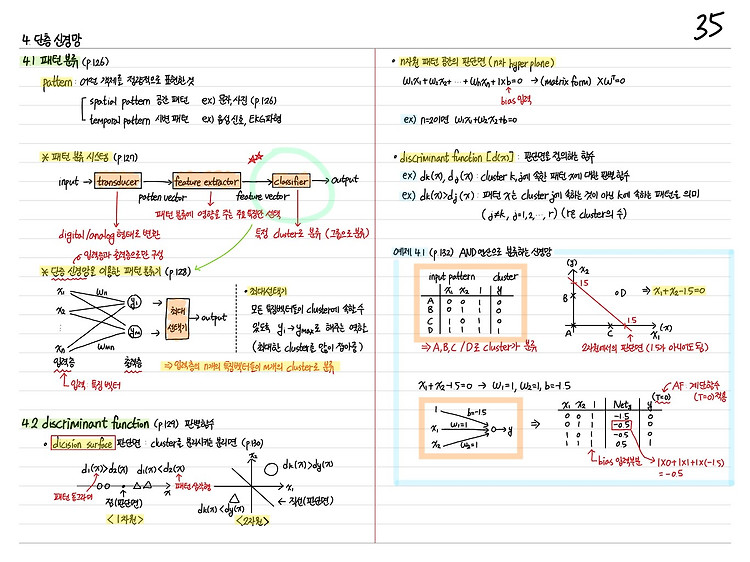 35
4. 단층 신경망
4.1 패턴 분류 (p126)
pattern : 어떤 객체를 정량적으로 표현한 것
spatial pattern 공간 패턴 ex) 문자, 사진 (p126)
temporal pattern 시변 패턴 ex) 음성신호, EKG파형
※ 패턴 분류 시스템 (p127)
input → transducer → feature extractor → classifier → output
patten vector feature vector
패턴 분류에 영향을 주는 주요 특징만 선택
digital/analog 형태로 변환
특정 cluster로 분류 (그룹으로 분류)
입력층과 출력층으로만 구성
※ 단층 신경망을 이용한 패턴 분류기 (p128)
x₁ w₁₁ y₁
x₂
최대 선택기 → output
xₙ wₘₙ yₘ
입력층 출력층
입력: 특징 벡터
• 최대선택기
모든 특징벡터들이 cluster에 속할 수
있도록 y₁→yₘₐₓ로 해주는 역할
⇒ 입력층의 n개의 특징벡터들이 m개의 cluster로 분류
4.2 discriminant function (p129) 판별함수
• dicision surface 판단면 : cluster를 분리시키는 분리면 (p130)
d₁(x)>d₂(x) d₁(x)<d₂(x)
점(판단면)
<1차원>
x₂
dₖ(x)>dⱼ(x)
x₁
dₖ(x)<dⱼ(x)
직선(판단면)
<2차원>
• n차원 패턴 공간의 판단면 (n차 hyper plane)
w₁x₁+w₂x₂+ ··· +wₙxₙ+1×b=0 → (matrix form) XWᵀ=0
bias 입력
ex) n=2이면 w₁x₁+w₂x₂+b=0
• discriminant function [d(x)] : 판단면을 정의하는 함수
ex) dₖ(x), dⱼ(x) : cluster k, j에 속한 패턴 x에 대한 판별함수
ex) dₖ(x)>dⱼ(x) : 패턴 x는 cluster j에 속하는 것이 아닌 k에 속하는 패턴을 의미
(j≠k, j=1, 2, ···, r) (r은 cluster의 수)
예제 4.1 (p132) AND 연산으로 분류하는 신경망
input pattern cluster
x₁ x₂ 1 y
A 0 0 1 0
B 0 1 1 0
C 1 0 1 0
D 1 1 1 1
⇒ A,B,C / D로 cluster가 분류
(y) x₂
1.5
B D
A C 1.5 x₁ (x)
⇒ x₁+x₂-1.5=0
2차원에서의 판단면 (1.5가 아니어도 됨)
x₁+x₂-1.5=0 → w₁=1, w₂=1, b=-1.5
1 b=-1.5
x₁ w₁=1 y
x₂ w₂=1
⇒
AF : 계단함수
(T=0) 적용
(T=0)
x₁ x₂ 1 Net y
0 0 1 -1.5 0
0 1 1 -0.5 0
1 0 1 -0.5 0
1 1 1 0.5 1
bias 입력부분
1×0+1×1+1×(-1.5)
=-0.5